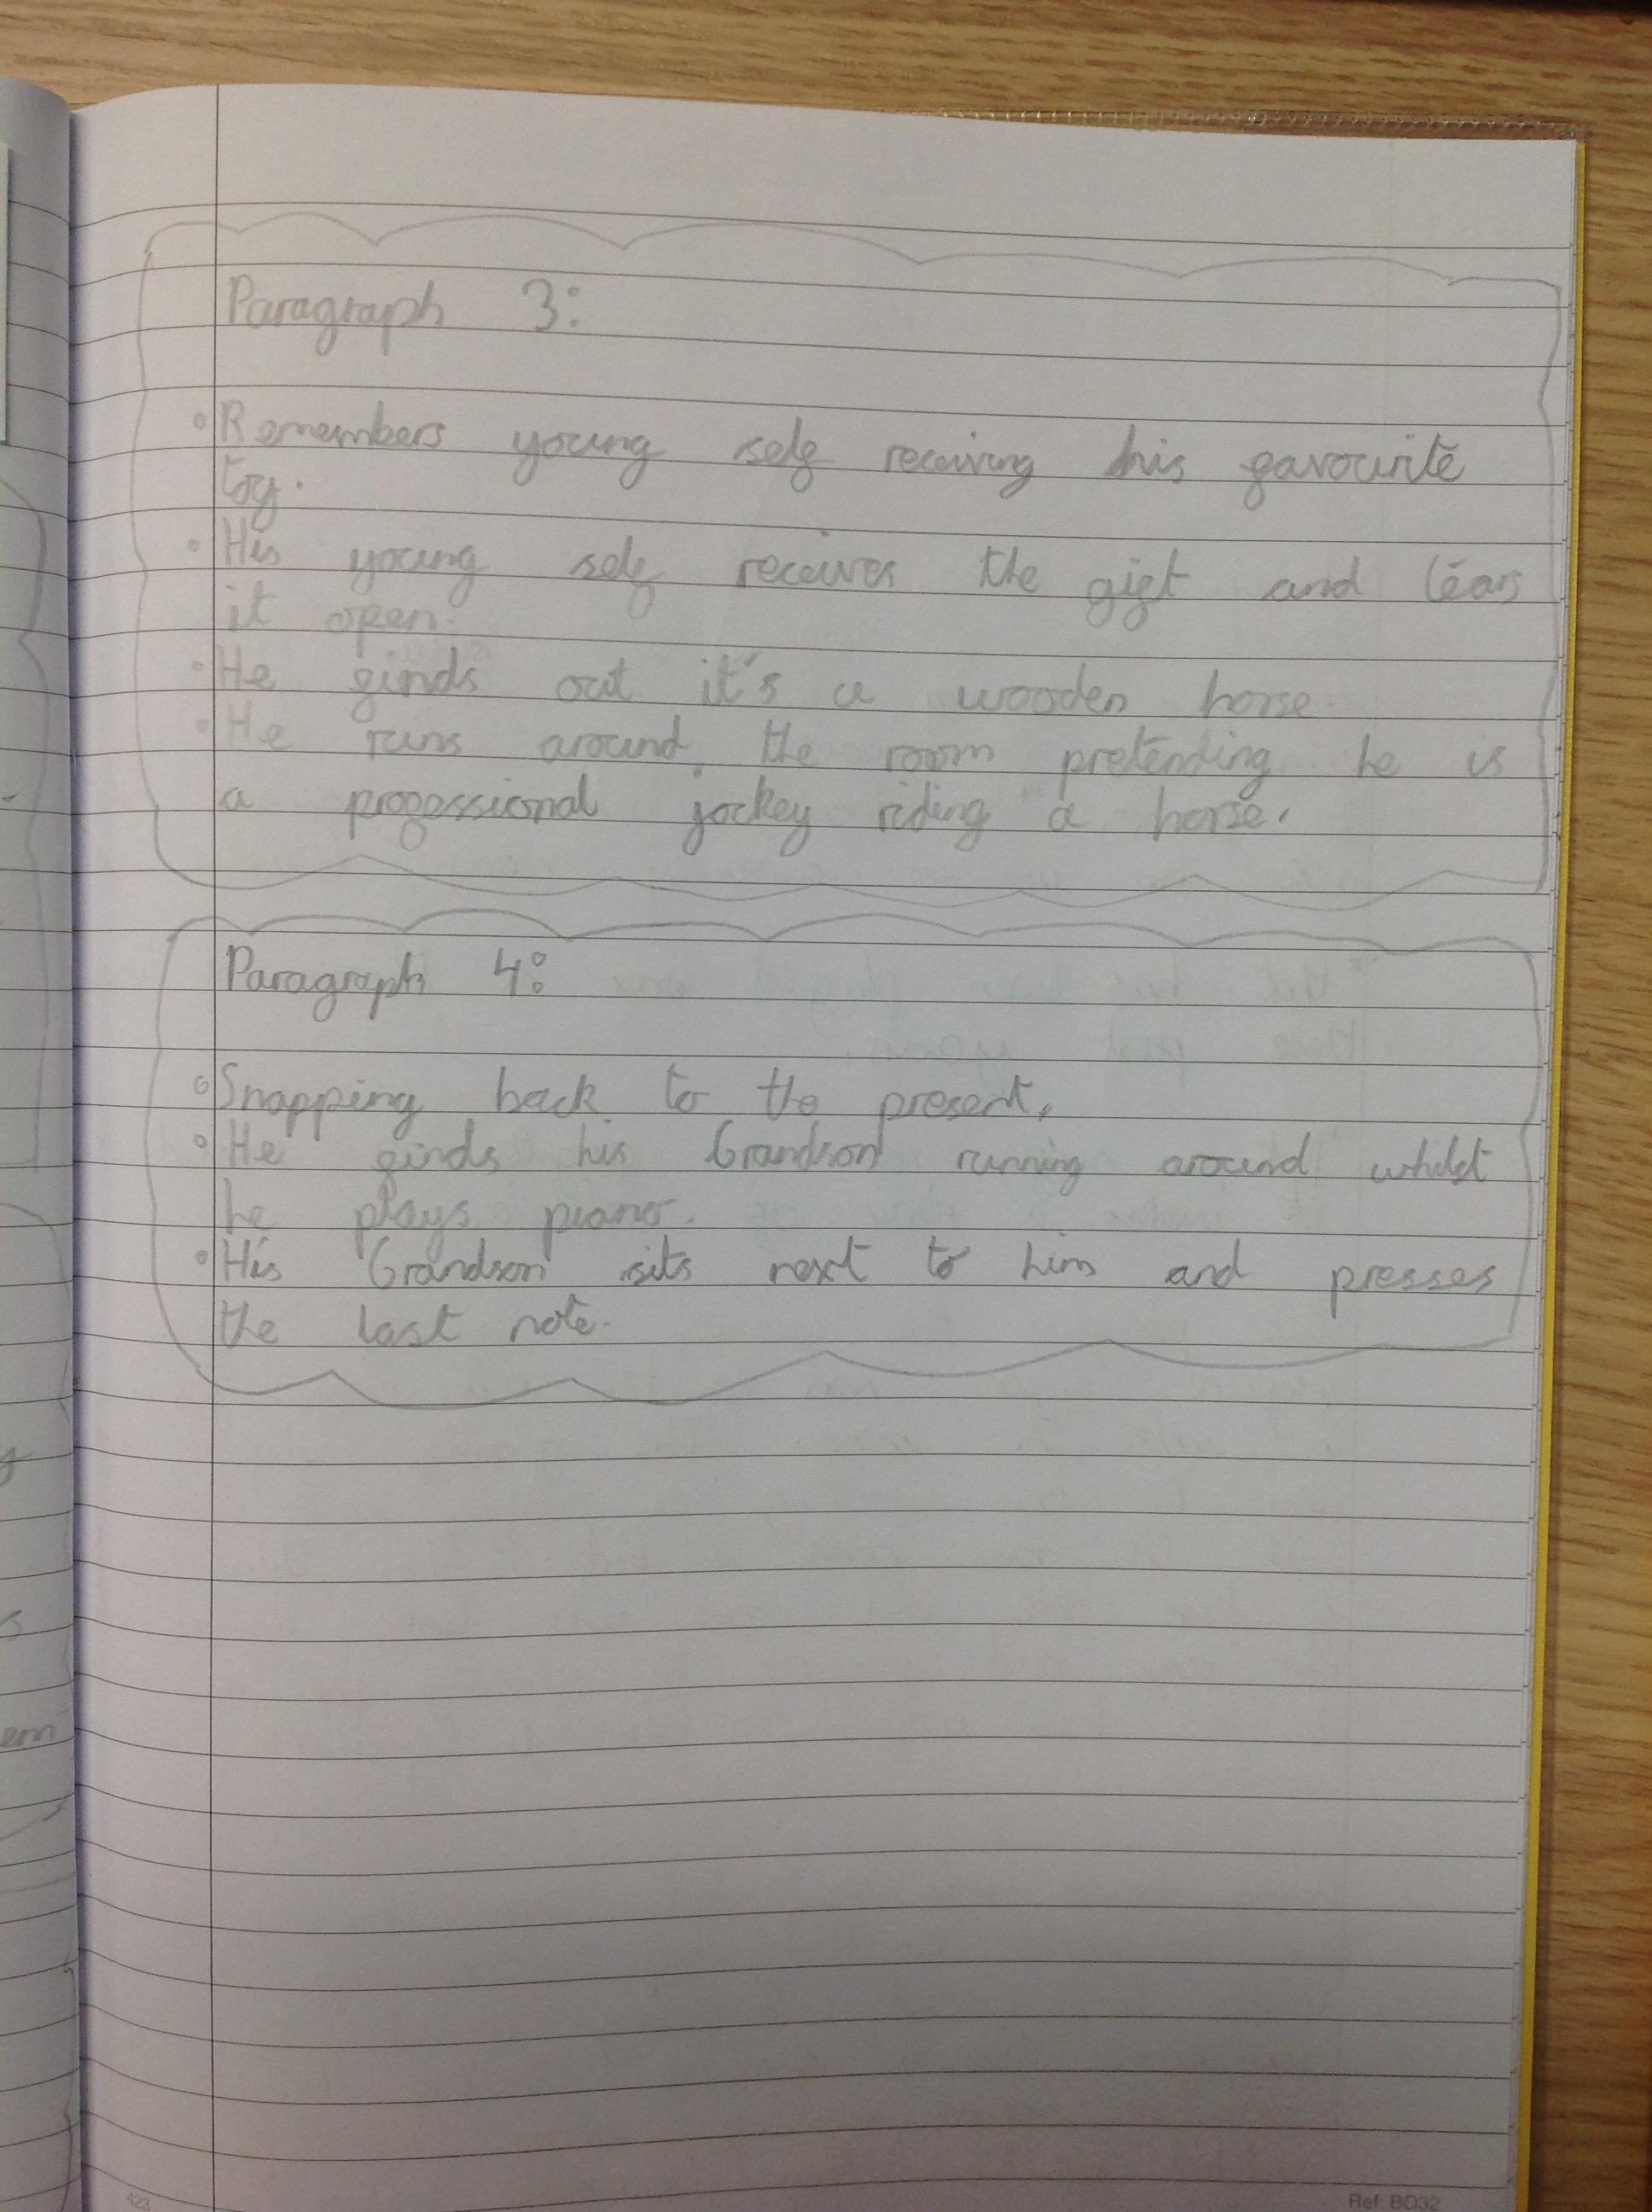 Paragraph 3:
• Remembers young self receiving his favourite
toy.
• His young self receives the gift and tears
it open.
• He finds out it's a wooden horse.
• He runs around the room pretending he is
a professional jockey riding a horse.
Paragraph 4:
• Snapping back to the present,
• He finds his Grandson running around whilst
he plays piano.
• His Grandson sits next to him and presses
the last note.
423
Ref: BO32